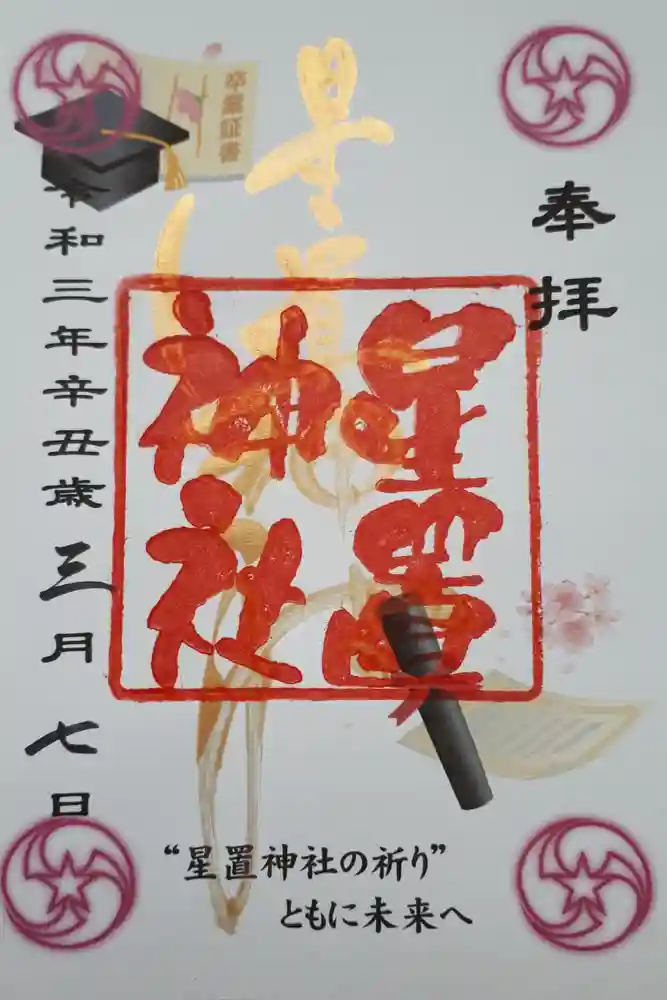 奉拝
星置神社
星置
神社
卒業証書
令和三年辛丑歳三月七日
“星置神社の祈り”
ともに未来へ